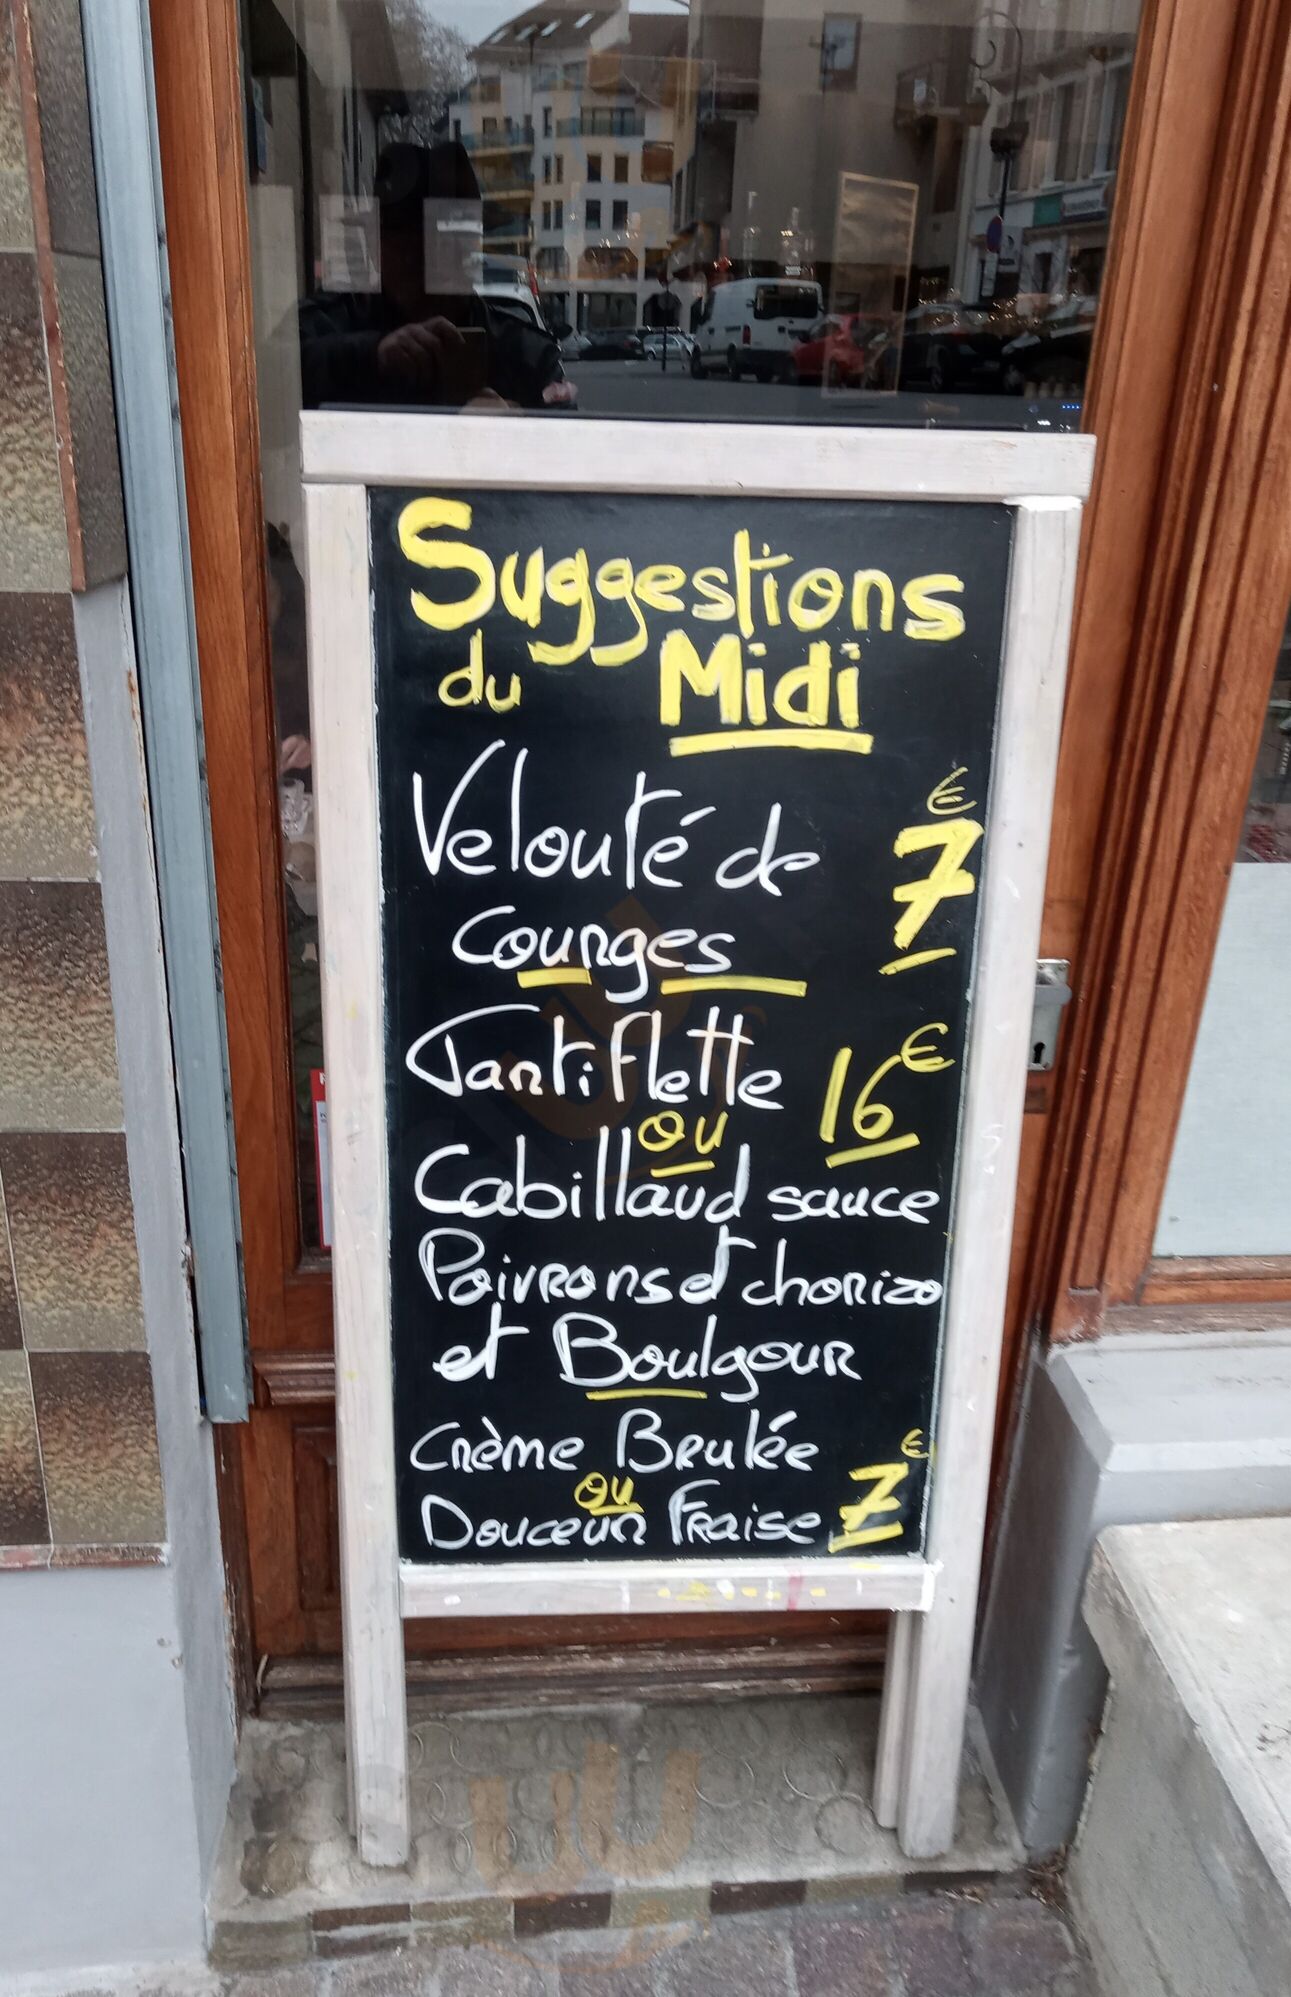 Suggestions
du Midi
Velouté de € 7
Courges
Tartiflette 16 €
ou
Cabillaud sauce
Poivrons et chorizo
et Boulgour
Crème Brulée €
ou 7
Douceur Fraise